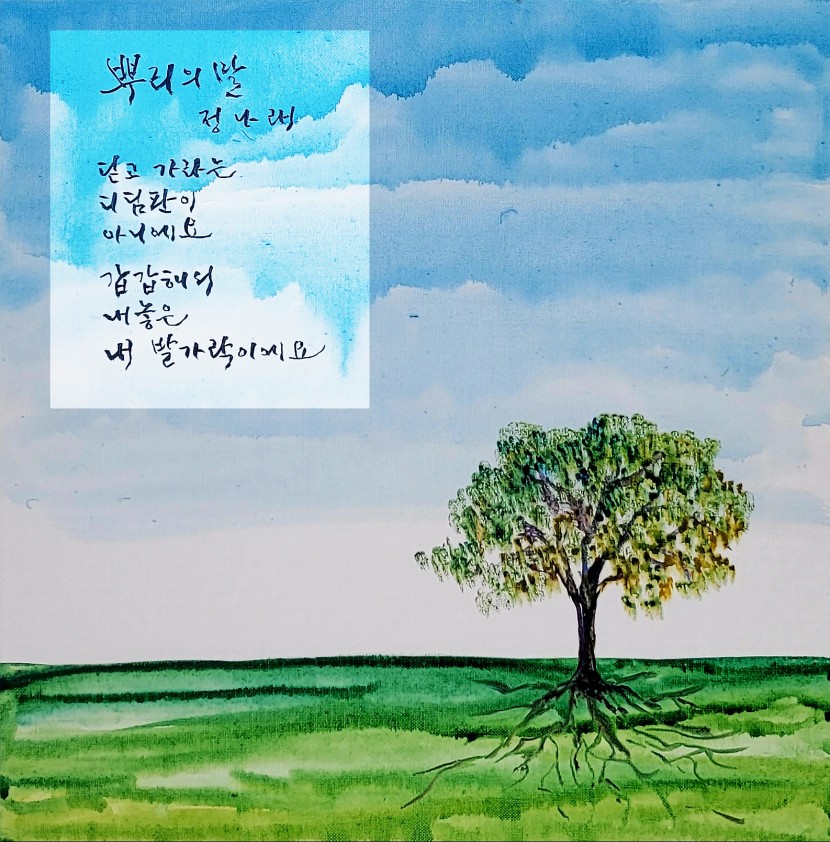 뿌리의 말
정나래
딛고 가라는
디딤판이
아니에요
갑갑해서
내놓은
내 발가락이에요